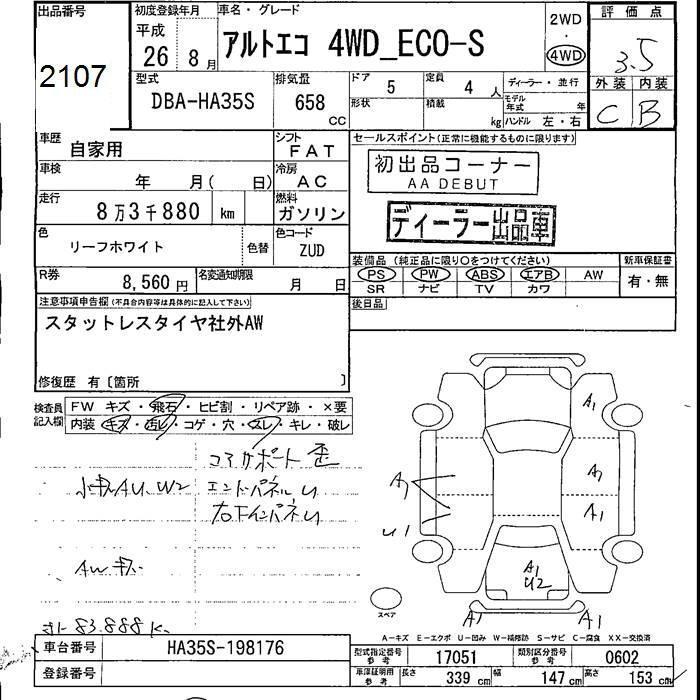 出品番号
2107
初度登録年月
平成
26 8月
車名・グレード
アルトエコ 4WD_ECO-S
2WD
・
4WD
評価点
3.5
外装 内装
C B
型式
DBA-HA35S
排気量
658
CC
ドア
5
定員
4 人
ディーラー・並行
形状
積載
kg
モデル年式
年
ハンドル 左・右
車歴
自家用
シフト
FAT
車検
年 月( 日)
冷房
AC
走行
8万3千880 km
燃料
ガソリン
色
リーフホワイト
色替
色コード
ZUD
R券
8,560円
名変通知期限
月 日
セールスポイント(正常に機能するものに限ります)
初出品コーナー
AA DEBUT
ディーラー出品車
装備品 (純正品に限り○をつけてください)
新車保証書
PS PW ABS エアB AW
SR ナビ TV カワ
有・無
後日品
注意事項申告欄(不具合内容等は具体的に記入して下さい)
スタットレスタイヤ社外AW
修復歴 有〔箇所 〕
検査員記入欄
FW キズ・飛石・ヒビ割・リペア跡・×要
内装 キズ・汚れ・コゲ・穴・スレ・キレ・破レ
コアサポート 歪
小キ AU. W2
エンドパネル U
右下インパネ U
AW キ
83.888 K
A1
A1
A1
U1
A1
U2
A1
A1
スペア
A-キズ E-エクボ U-凹み W-補修跡 S-サビ C-腐食 XX-交換済
車台番号
HA35S-198176
登録番号
型式指定番号
参考
17051
類別区分番号
参考
0602
車庫証明用
参考
長さ
339 cm
幅
147 cm
高さ
153 cm